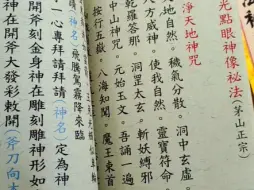 光點眼神像秘法(茅山正宗)
淨天地神咒
地自然。穢氣分散。洞中玄虛。
八方威神。使我自然。靈寶符命
乾羅答那。洞罡太玄。斬妖縛邪
中山神咒。元始玉文。吾誦一遍
按行五嶽。八海知聞。魔王束首
(神名)飛騰駕霧降來臨
一心專拜請拜請(神名)定為神
開斧刻金身神在雕刻雕神形如
神在開斧大發彩敕開(斧刀向